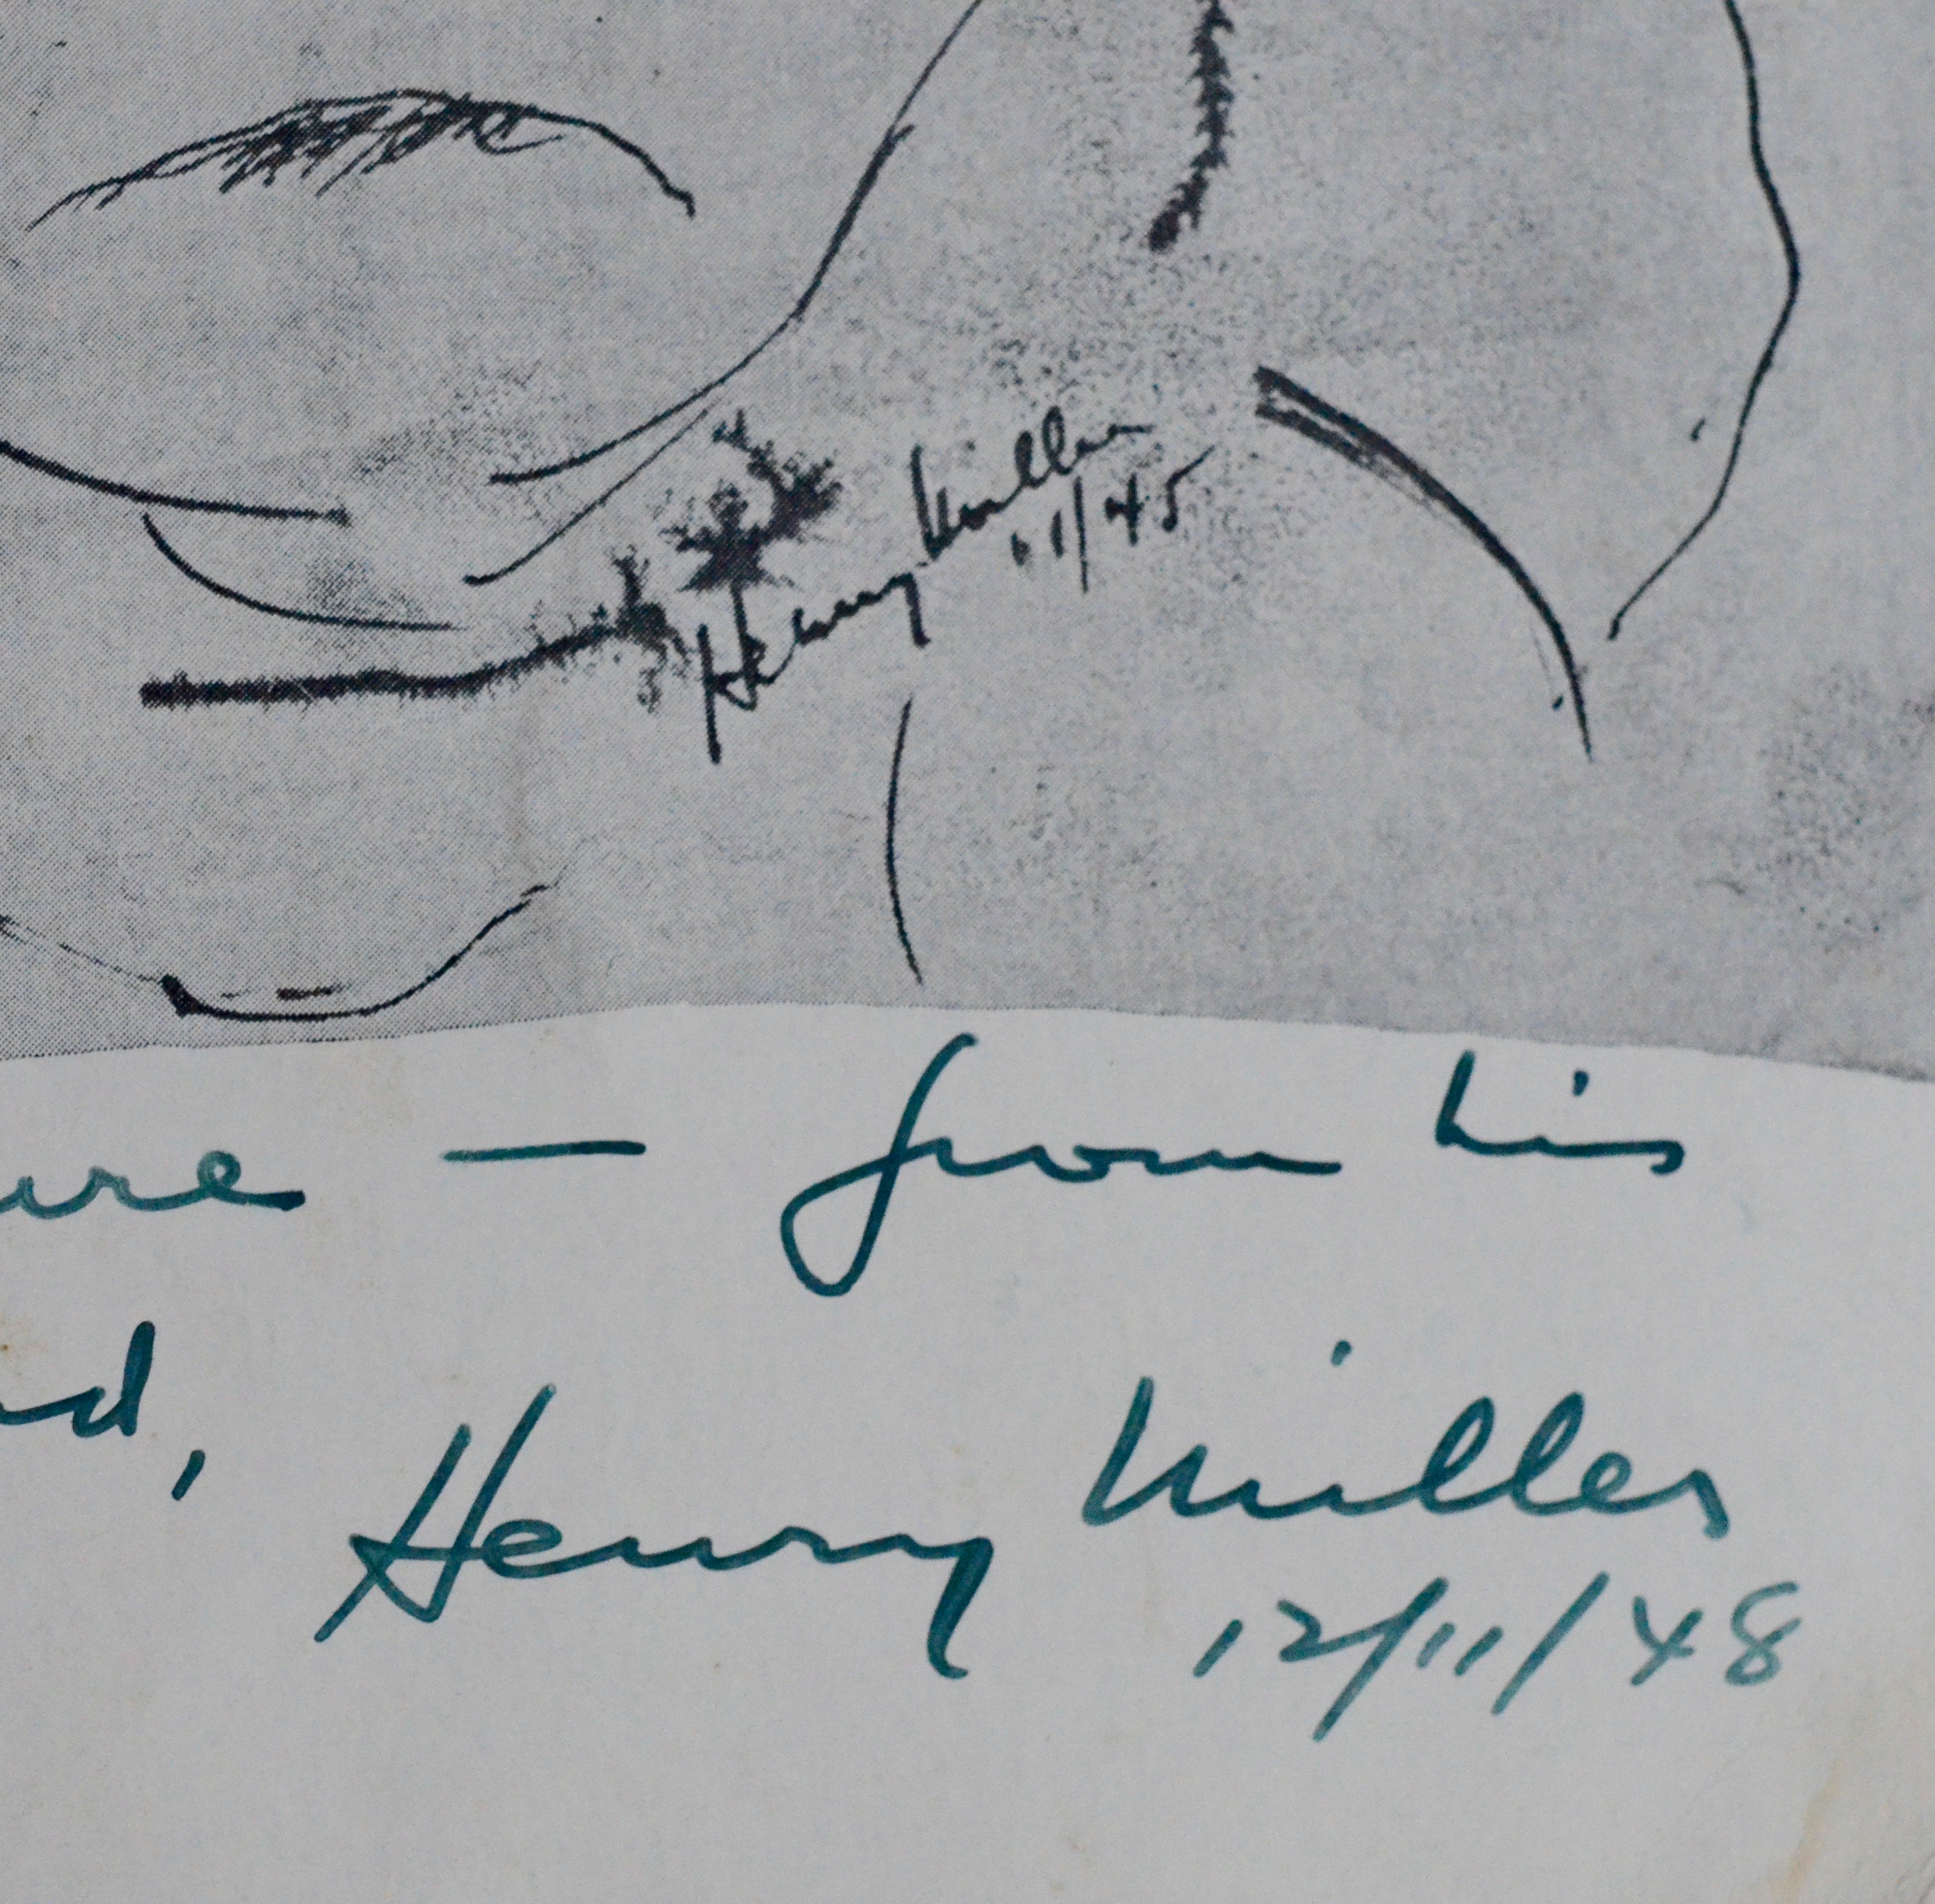 Henry Miller
11/45
ure — from his
d,
Henry Miller
12/11/48